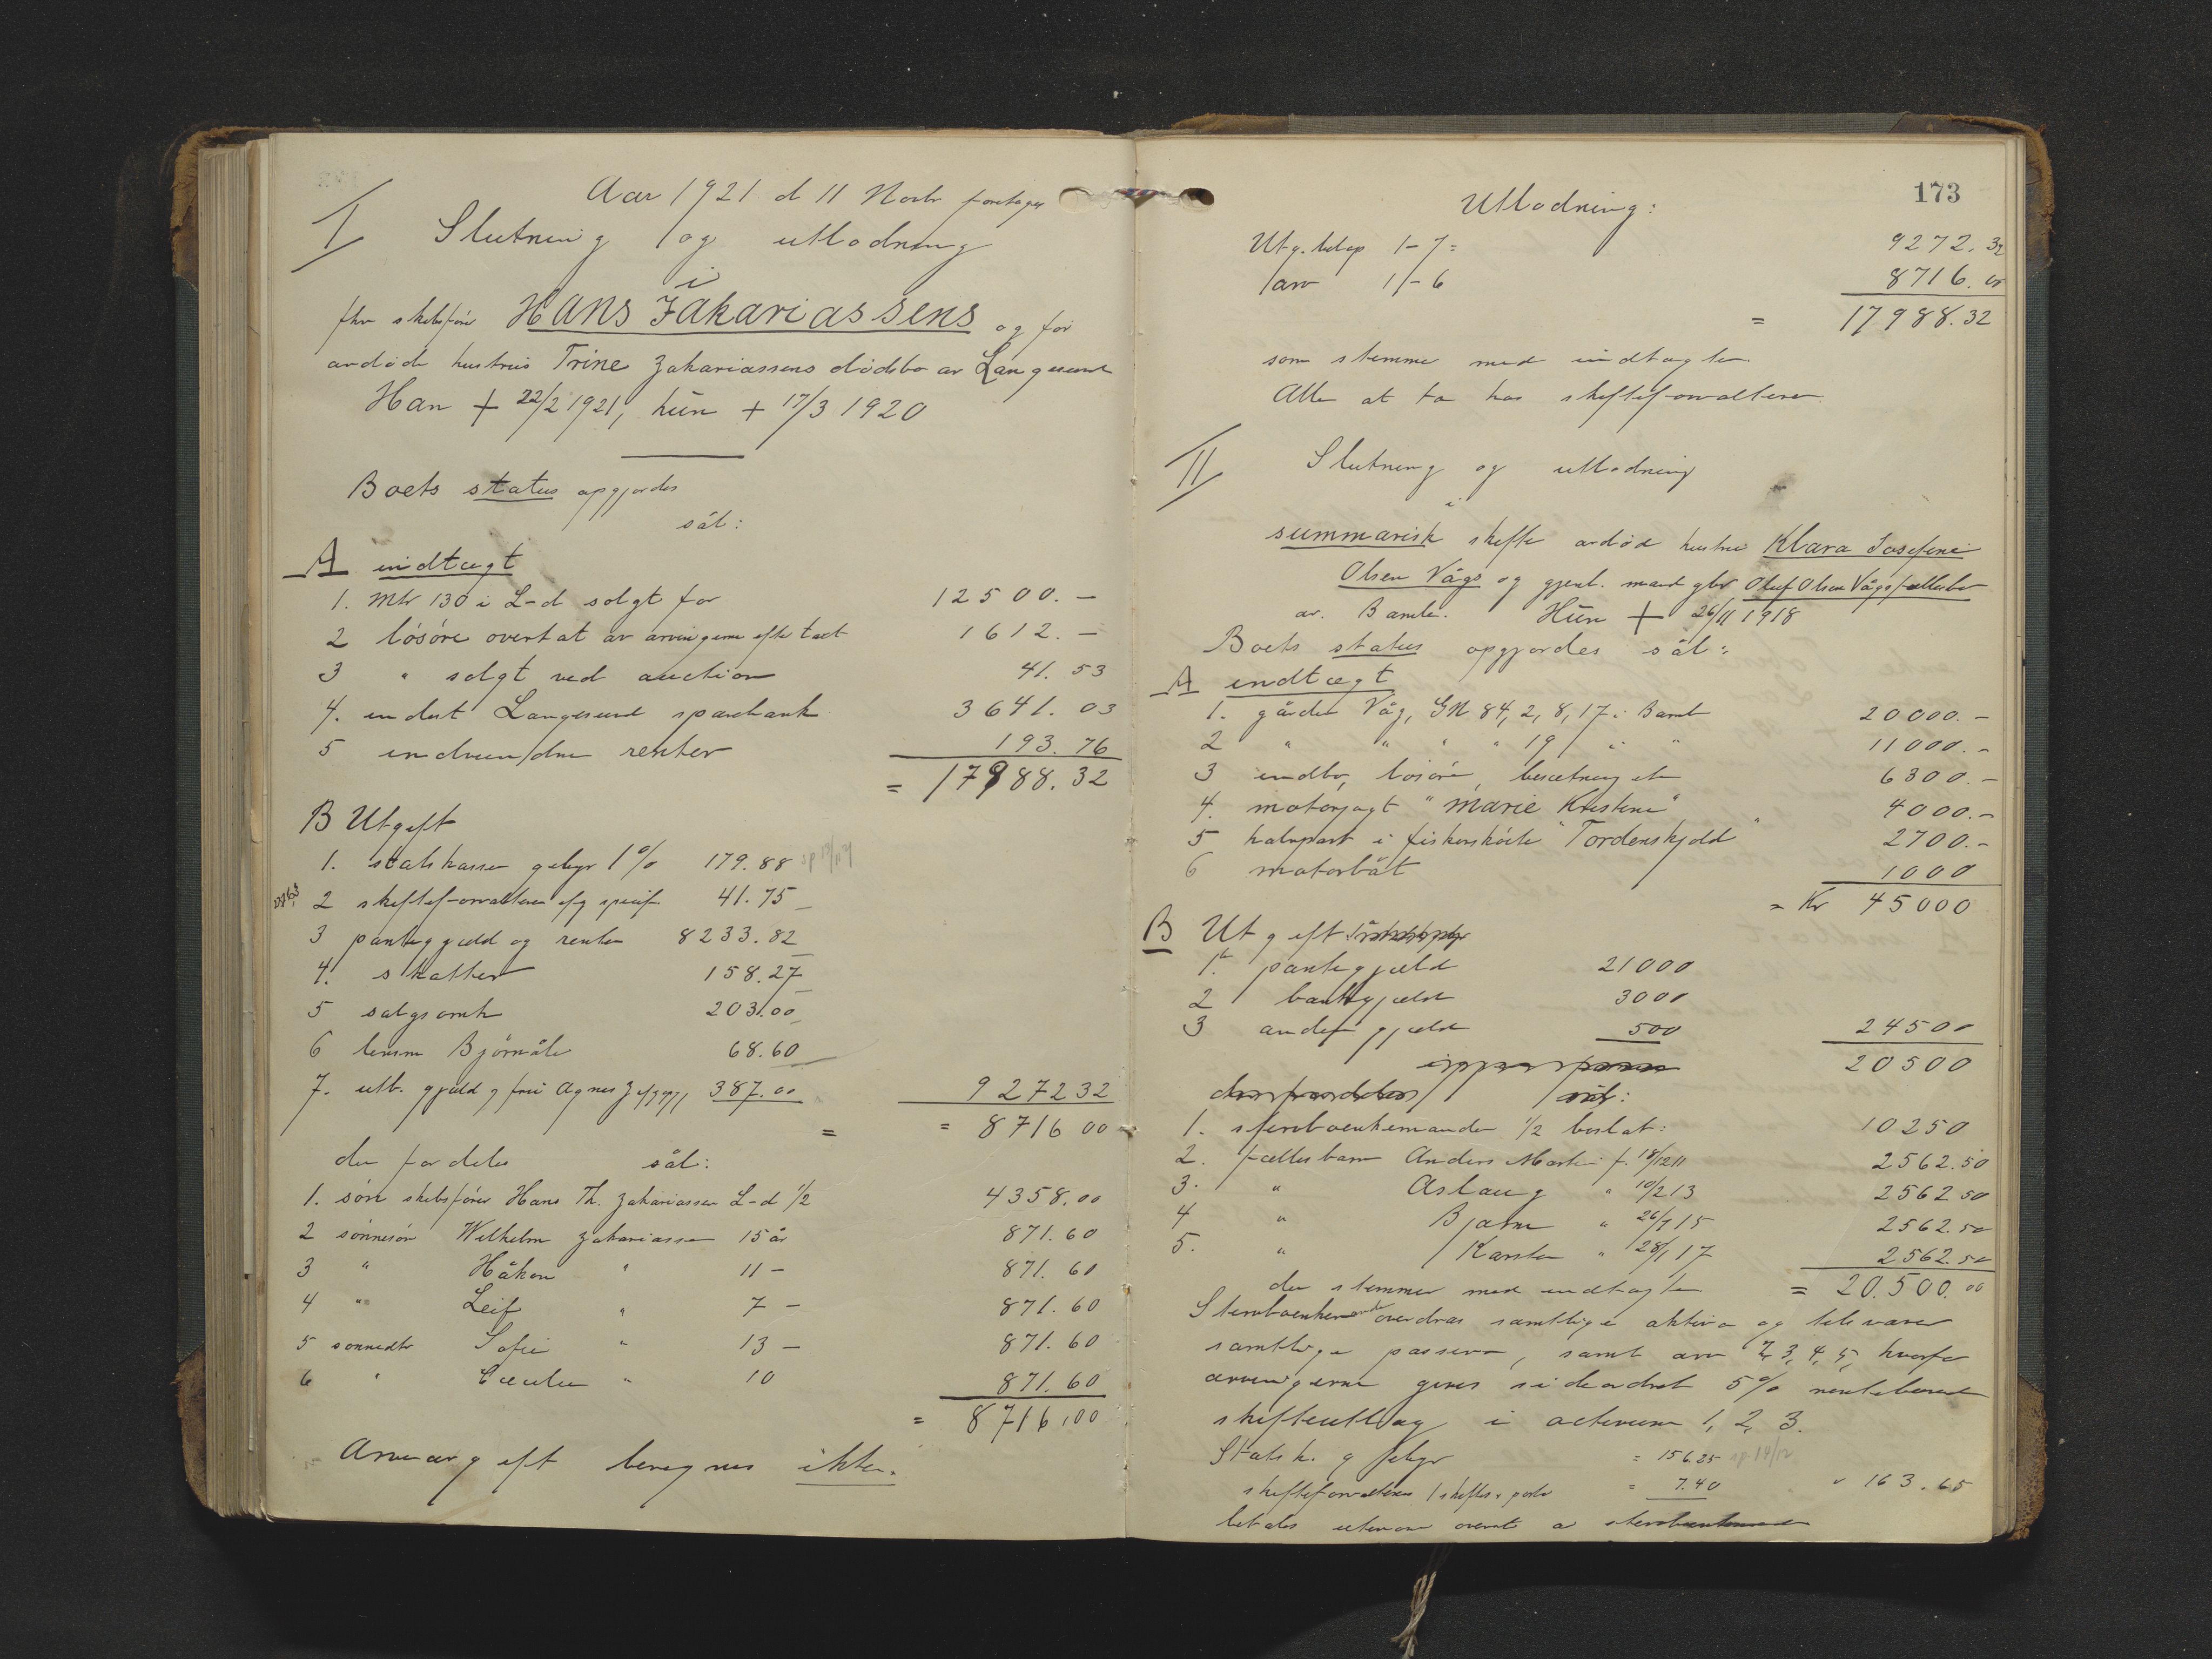 Aar 1921 d 11 Novbr foretages
I Slutning og utlodning
i
fhv skibsfører Hans Zakariassens og før
avdøde hustrus Trine Zakariassens dödsbo av Langesund
Han + 22/2 1921, hun + 17/3 1920
Boets status opgjordes
sål:
A indtægt
1. Mtr 130 i L-d solgt for 12500.-
2 lösöre overtat av arvingerne efter taxt 1612.-
3 " solgt ved auction 41.53
4. indest Langesund sparebank 3641.03
5 indvundne renter 193.76
= 17988.32
B Utgift
1. statskassen gebyr 1% 179.88
2 skifteforvalteren efg specif 41.75
3 pantegjæld og renter 8233.82
4. skatter 158.27
5 salgsomk 203.00
6 lensm Björnåli 68.60
7. utb. gjæld g frü Agnes Z 387.00 927232
= = 8716 00
der fordeles sål:
1. sön skibsförer Hans Th. Zakariassen L-d 1/2 4358.00
2 sönnesön Wilhelm Zakariassen 15 år 871.60
3 " Håkon " 11 - 871.60
4 " Leif " 7 - 871.60
5 sonnedtr Sofie " 13 - 871.60
6 " Cecilie " 10 871.60
= 8716,00
Arveavgift beregnes ikke.
173
Utlodning:
Utg. belop 1-7= 9272.32
arv 1-6 8716.00
= 17988.32
som stemmer med indtægten.
Alle at ta hos skifteforvalteren.
II Slutning og utlodning
i
summarisk skifte avdöd hustru Klara Josefine
Olsen Vågs og gjenl. mand gbr Oluf Olsen Vågs fællesbo
av Bamle. Hun + 26/11 1918
Boets status opgjordes sål:
A indtægt
1. gården Våg, GN 84, 2, 8, 17 i Bamle 20000.-
2 " " " " 19 i " 11000.-
3 indbo, lösöre, besætning etc 6300.-
4. motorjagt "Marie Kristine" 4000.-
5 halvpart i fiskerskoite "Tordenskjold" 2700.-
6 motorbåt 1000
= Kr 45000
B Utgift
1. pantegjæld 21000
2 bankgjæld 3000
3 anden gjæld 500 24500
20500
sål:
1. sterboenkemanden 1/2 beslot: 10250
2. fællesbarn Anders Martin f. 18/12 11 2562.50
3. " Aslaug " 10/2 13 2562 50
4 " Bjarne " 26/7 15 2562.50
5. " Karsten " 28/1 17 2562.50
der stemmer med indtægten = 20.500.00
Sterboenkemanden overdras samtlige aktiva og tilsvarer
samtlige passiva, samt arv 2, 3, 4, 5, hvorfor
arvingerne gives sideordnet 5% rentebærende
skifteutlæg i activum 1, 2, 3.
Statsk. g gebyr = 156.25
skifteforvalteren skiftes. porto = 7.40 163.65
betales utenom overmt a sterboenkemanden